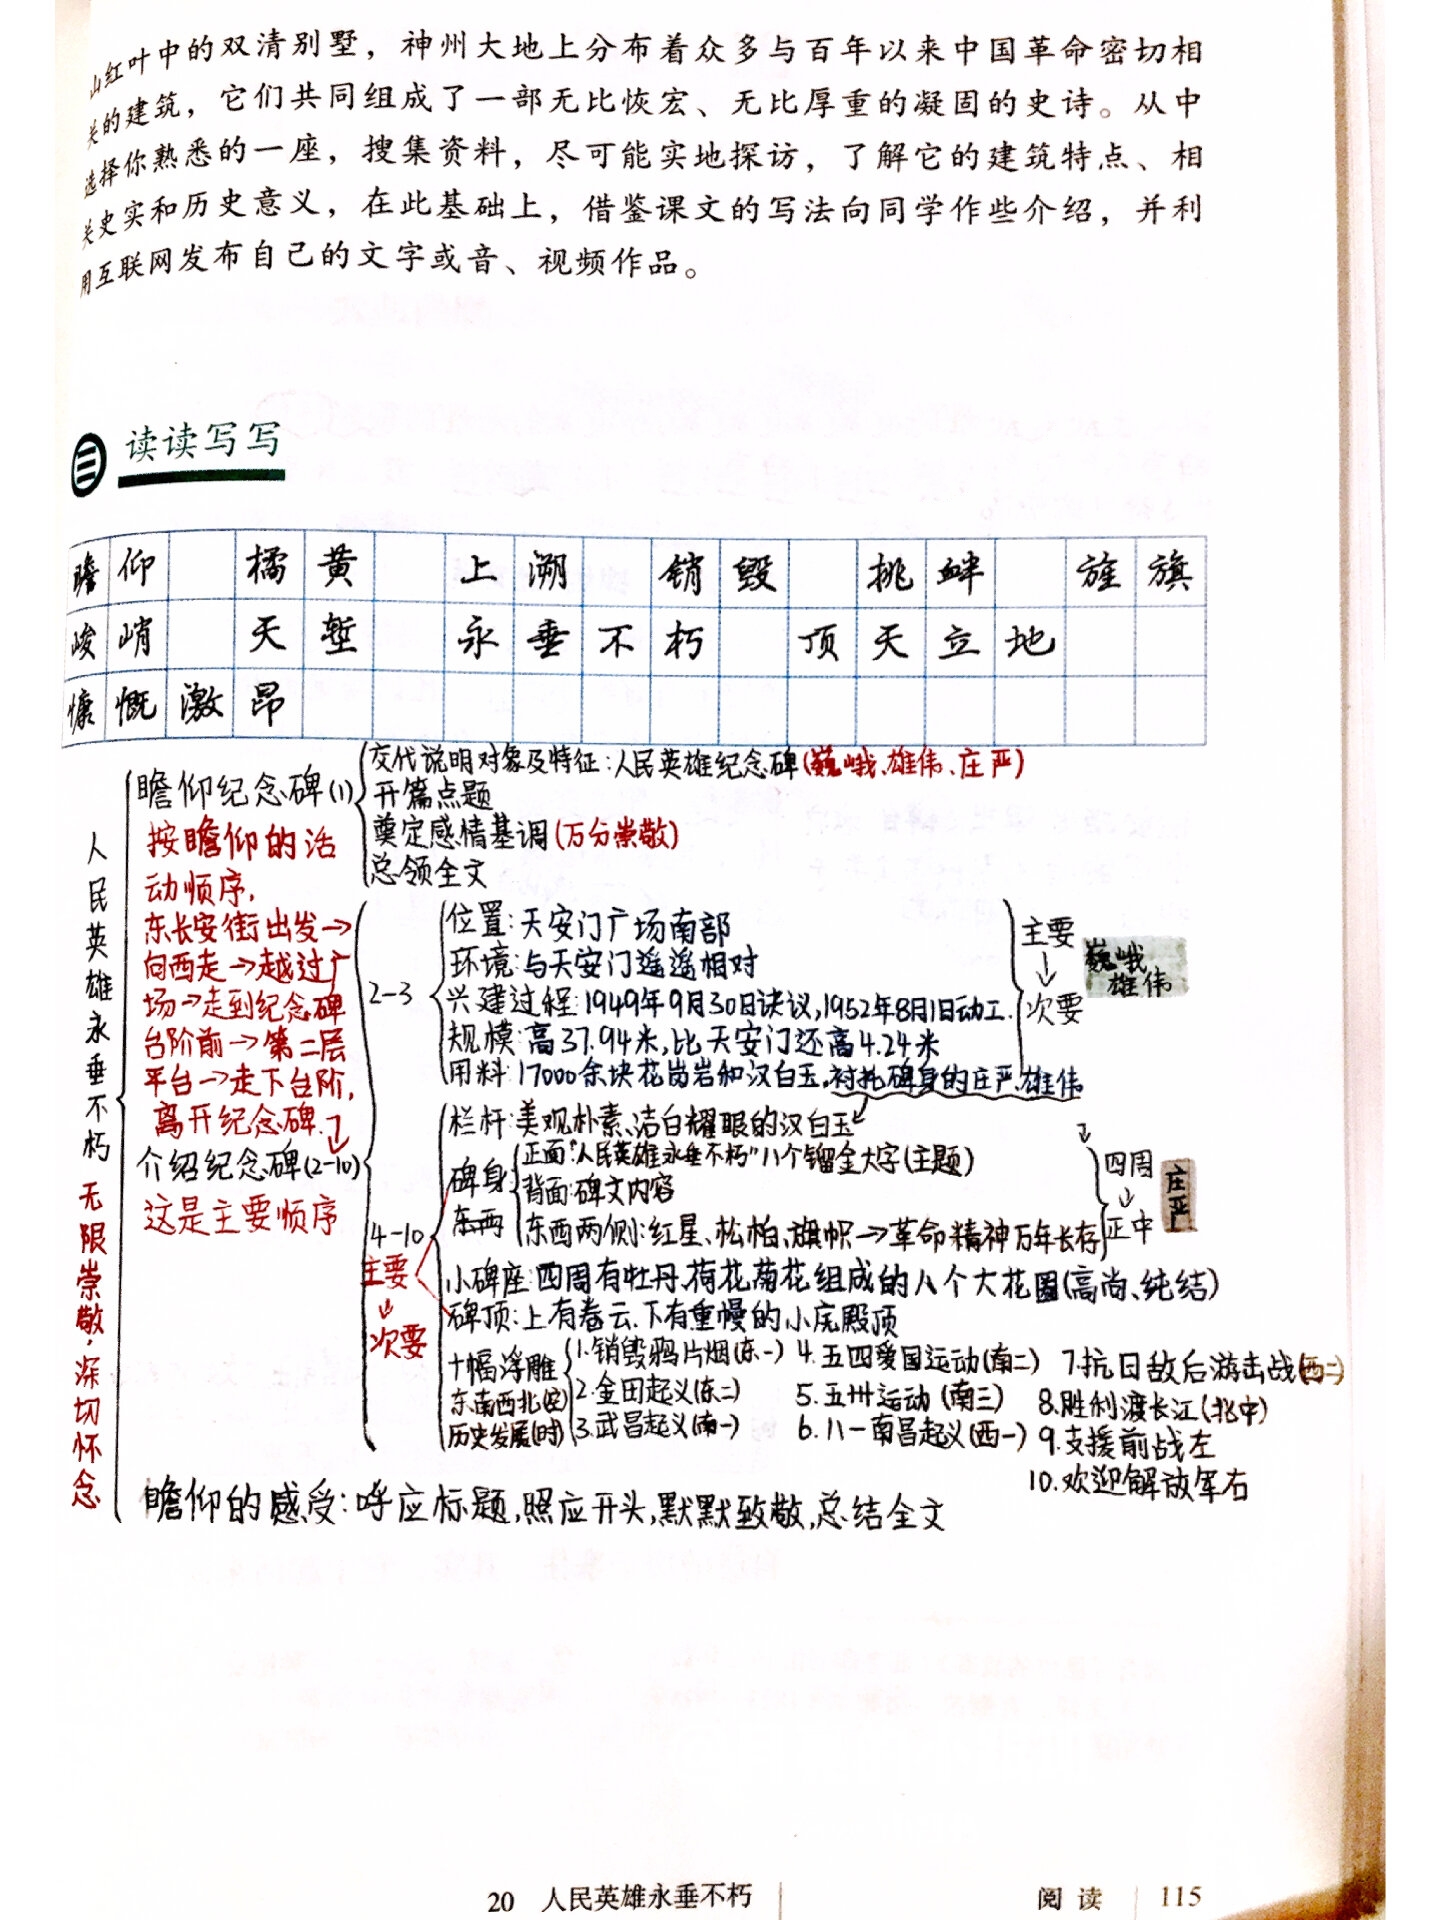 山红叶中的双清别墅，神州大地上分布着众多与百年以来中国革命密切相
关的建筑，它们共同组成了一部无比恢宏、无比厚重的凝固的史诗。从中
选择你熟悉的一座，搜集资料，尽可能实地探访，了解它的建筑特点、相
关史实和历史意义，在此基础上，借鉴课文的写法向同学作些介绍，并利
用互联网发布自己的文字或音、视频作品。
三 读读写写
瞻仰 橘黄 上溯 销毁 挑衅 旌旗
峻峭 天堑 永垂不朽 顶天立地
慷慨激昂
人民英雄永垂不朽 无限崇敬，深切怀念
瞻仰纪念碑(1)
交代说明对象及特征：人民英雄纪念碑(巍峨、雄伟、庄严)
开篇点题
奠定感情基调(万分崇敬)
总领全文
按瞻仰的活
动顺序，
东长安街出发→
向西走→越过广
场→走到纪念碑
台阶前→第二层
平台→走下台阶，
离开纪念碑.
介绍纪念碑(2-10)
这是主要顺序
2-3
位置：天安门广场南部
环境：与天安门遥遥相对
兴建过程：1949年9月30日决议，1952年8月1日动工.
规模：高37.94米，比天安门还高4.24米
用料：17000余块花岗岩和汉白玉，衬托碑身的庄严、雄伟
主要
↓
次要
巍峨
雄伟
4-10
主要
↓
次要
栏杆：美观朴素、洁白耀眼的汉白玉
碑身
东西
正面：“人民英雄永垂不朽”八个镏金大字(主题)
背面：碑文内容
东西两侧：红星、松柏、旗帜→革命精神万年长存
四周
↓
正中
庄严
小碑座：四周有牡丹、荷花菊花组成的八个大花圈(高尚、纯结)
碑顶：上有卷云、下有重幔的小庑殿顶
十幅浮雕
东南西北(空)
历史发展(时)
1.销毁鸦片烟(东一)
2.金田起义(东二)
3.武昌起义(南一)
4.五四爱国运动(南二)
5.五卅运动(南三)
6.八一南昌起义(西一)
7.抗日敌后游击战(西二)
8.胜利渡长江(北中)
9.支援前战左
10.欢迎解放军右
瞻仰的感受：呼应标题，照应开头，默默致敬，总结全文
20 人民英雄永垂不朽
阅读 115